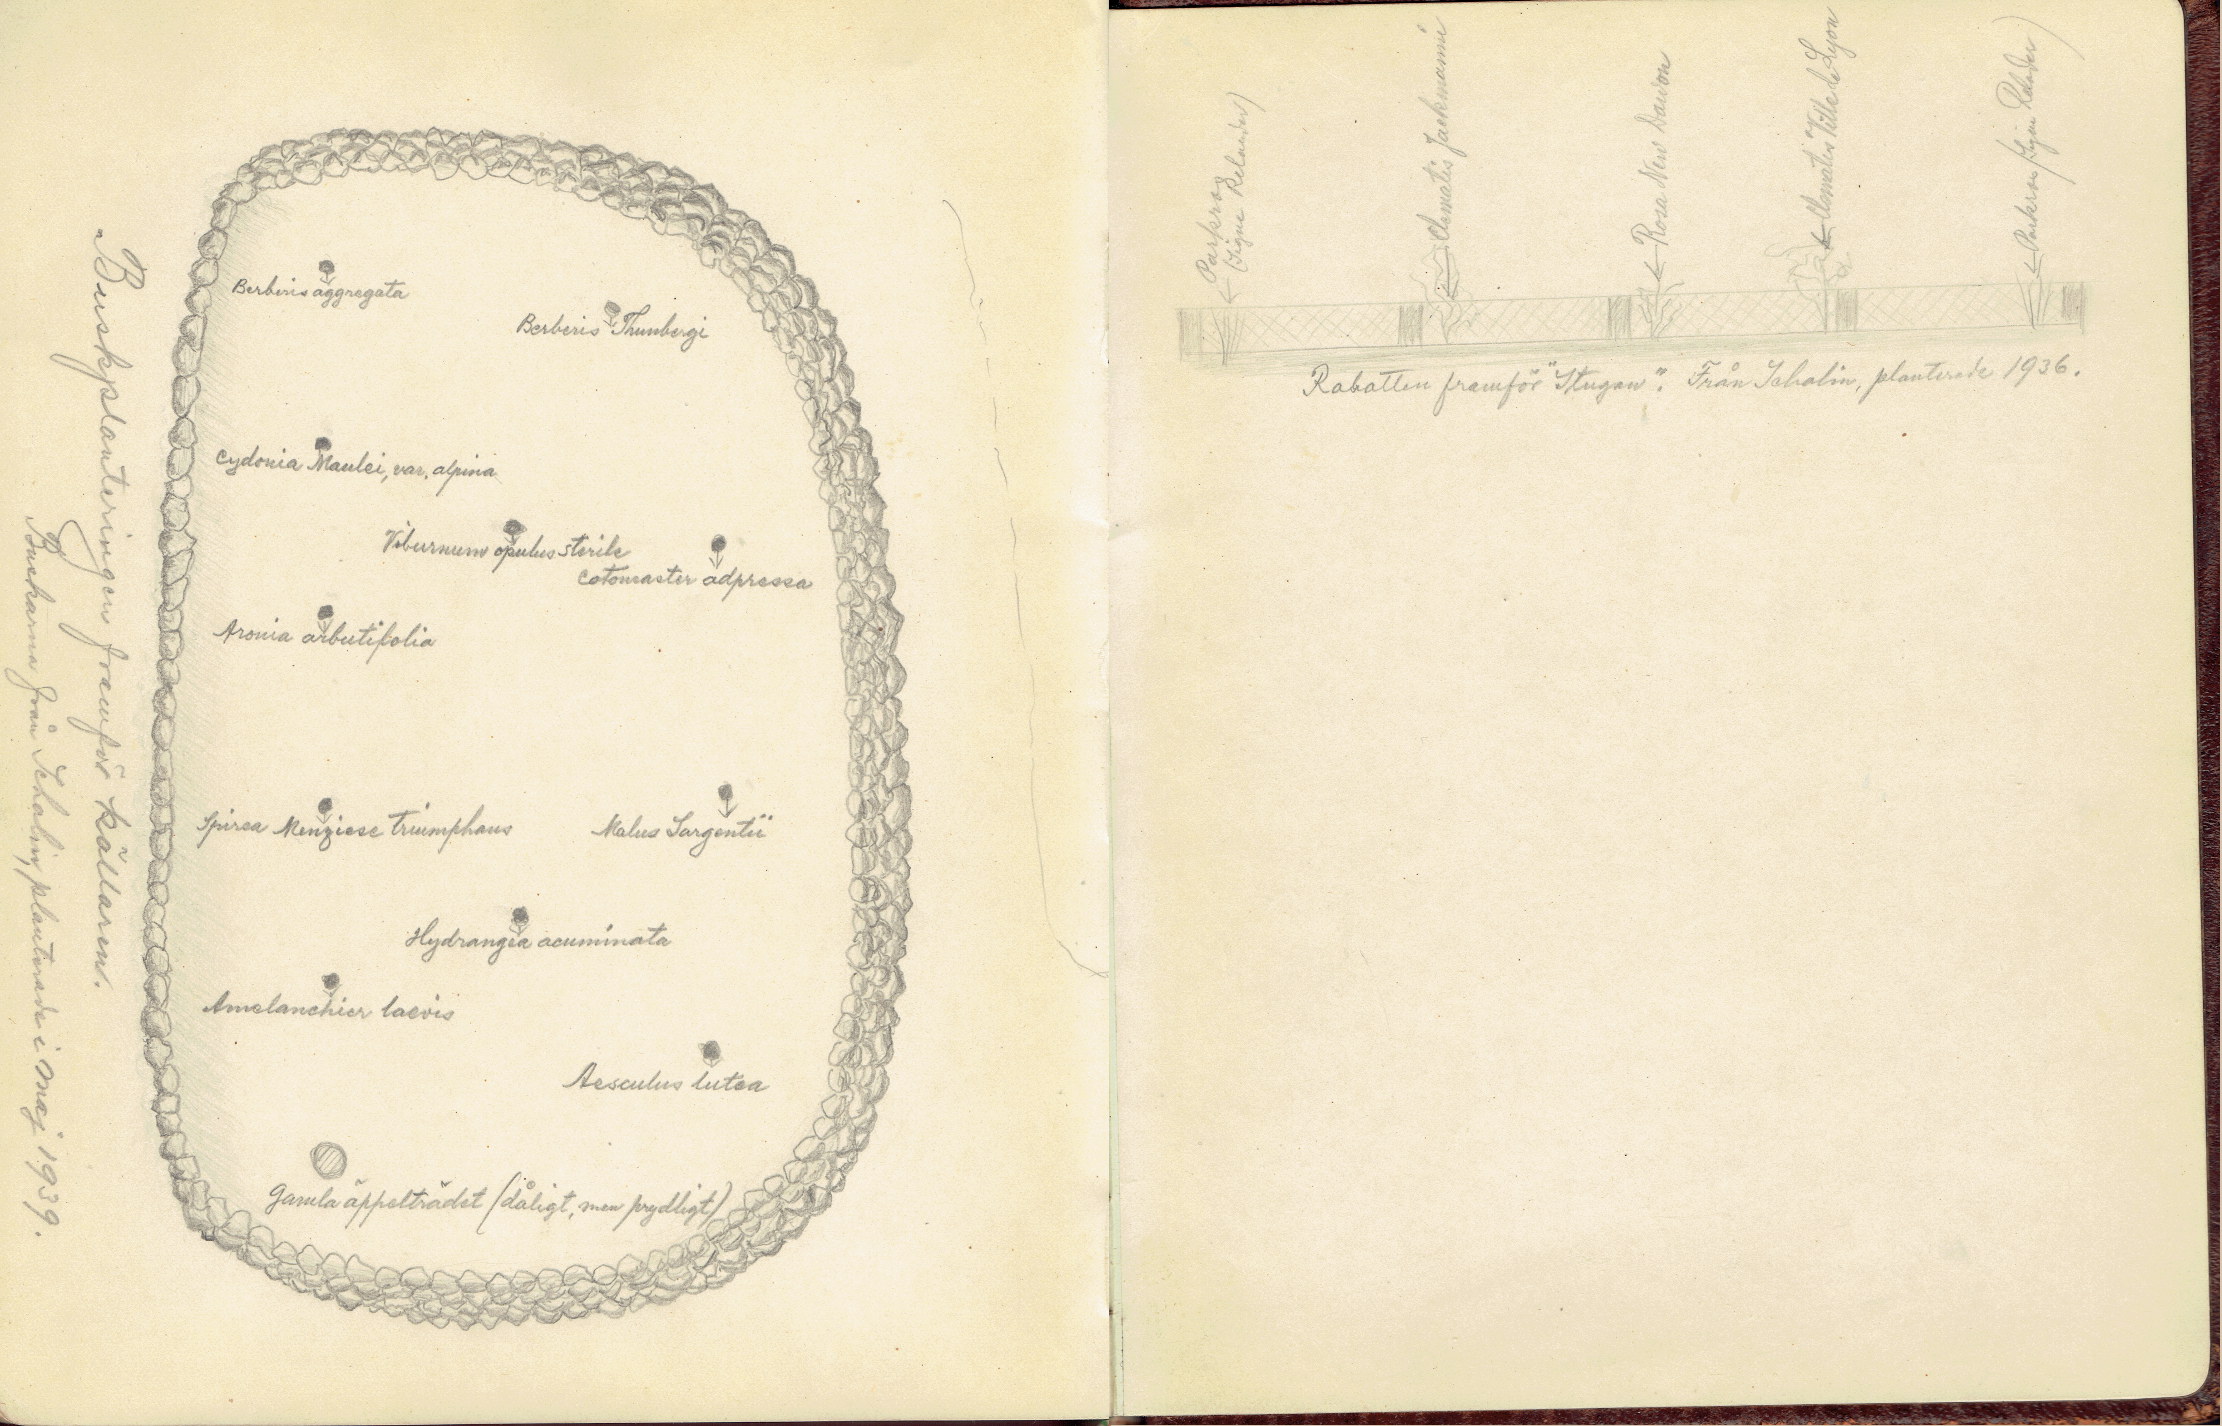 Buskplanteringen framför källaren.
Buskarna från Schalin, planterade i maj 1939.
Berberis aggregata
Berberis Thunbergi
Cydonia Maulei, var. alpina
Viburnum opulus sterile
Cotoneaster adpressa
Aronia arbutifolia
Spirea Menziese triumphans
Malus Sargentii
Hydrangea acuminata
Amelanchier laevis
Aesculus lutea
Gamla äppelträdet (dåligt, men prydligt)
Parkros
(Signe Relander)
Clematis Jackmanni
Rosa New Dawon
Clematis Ville de Lyon
Parkros (Signe Relander)
Rabatten framför "Stugan". Från Schalin, planterade 1936.